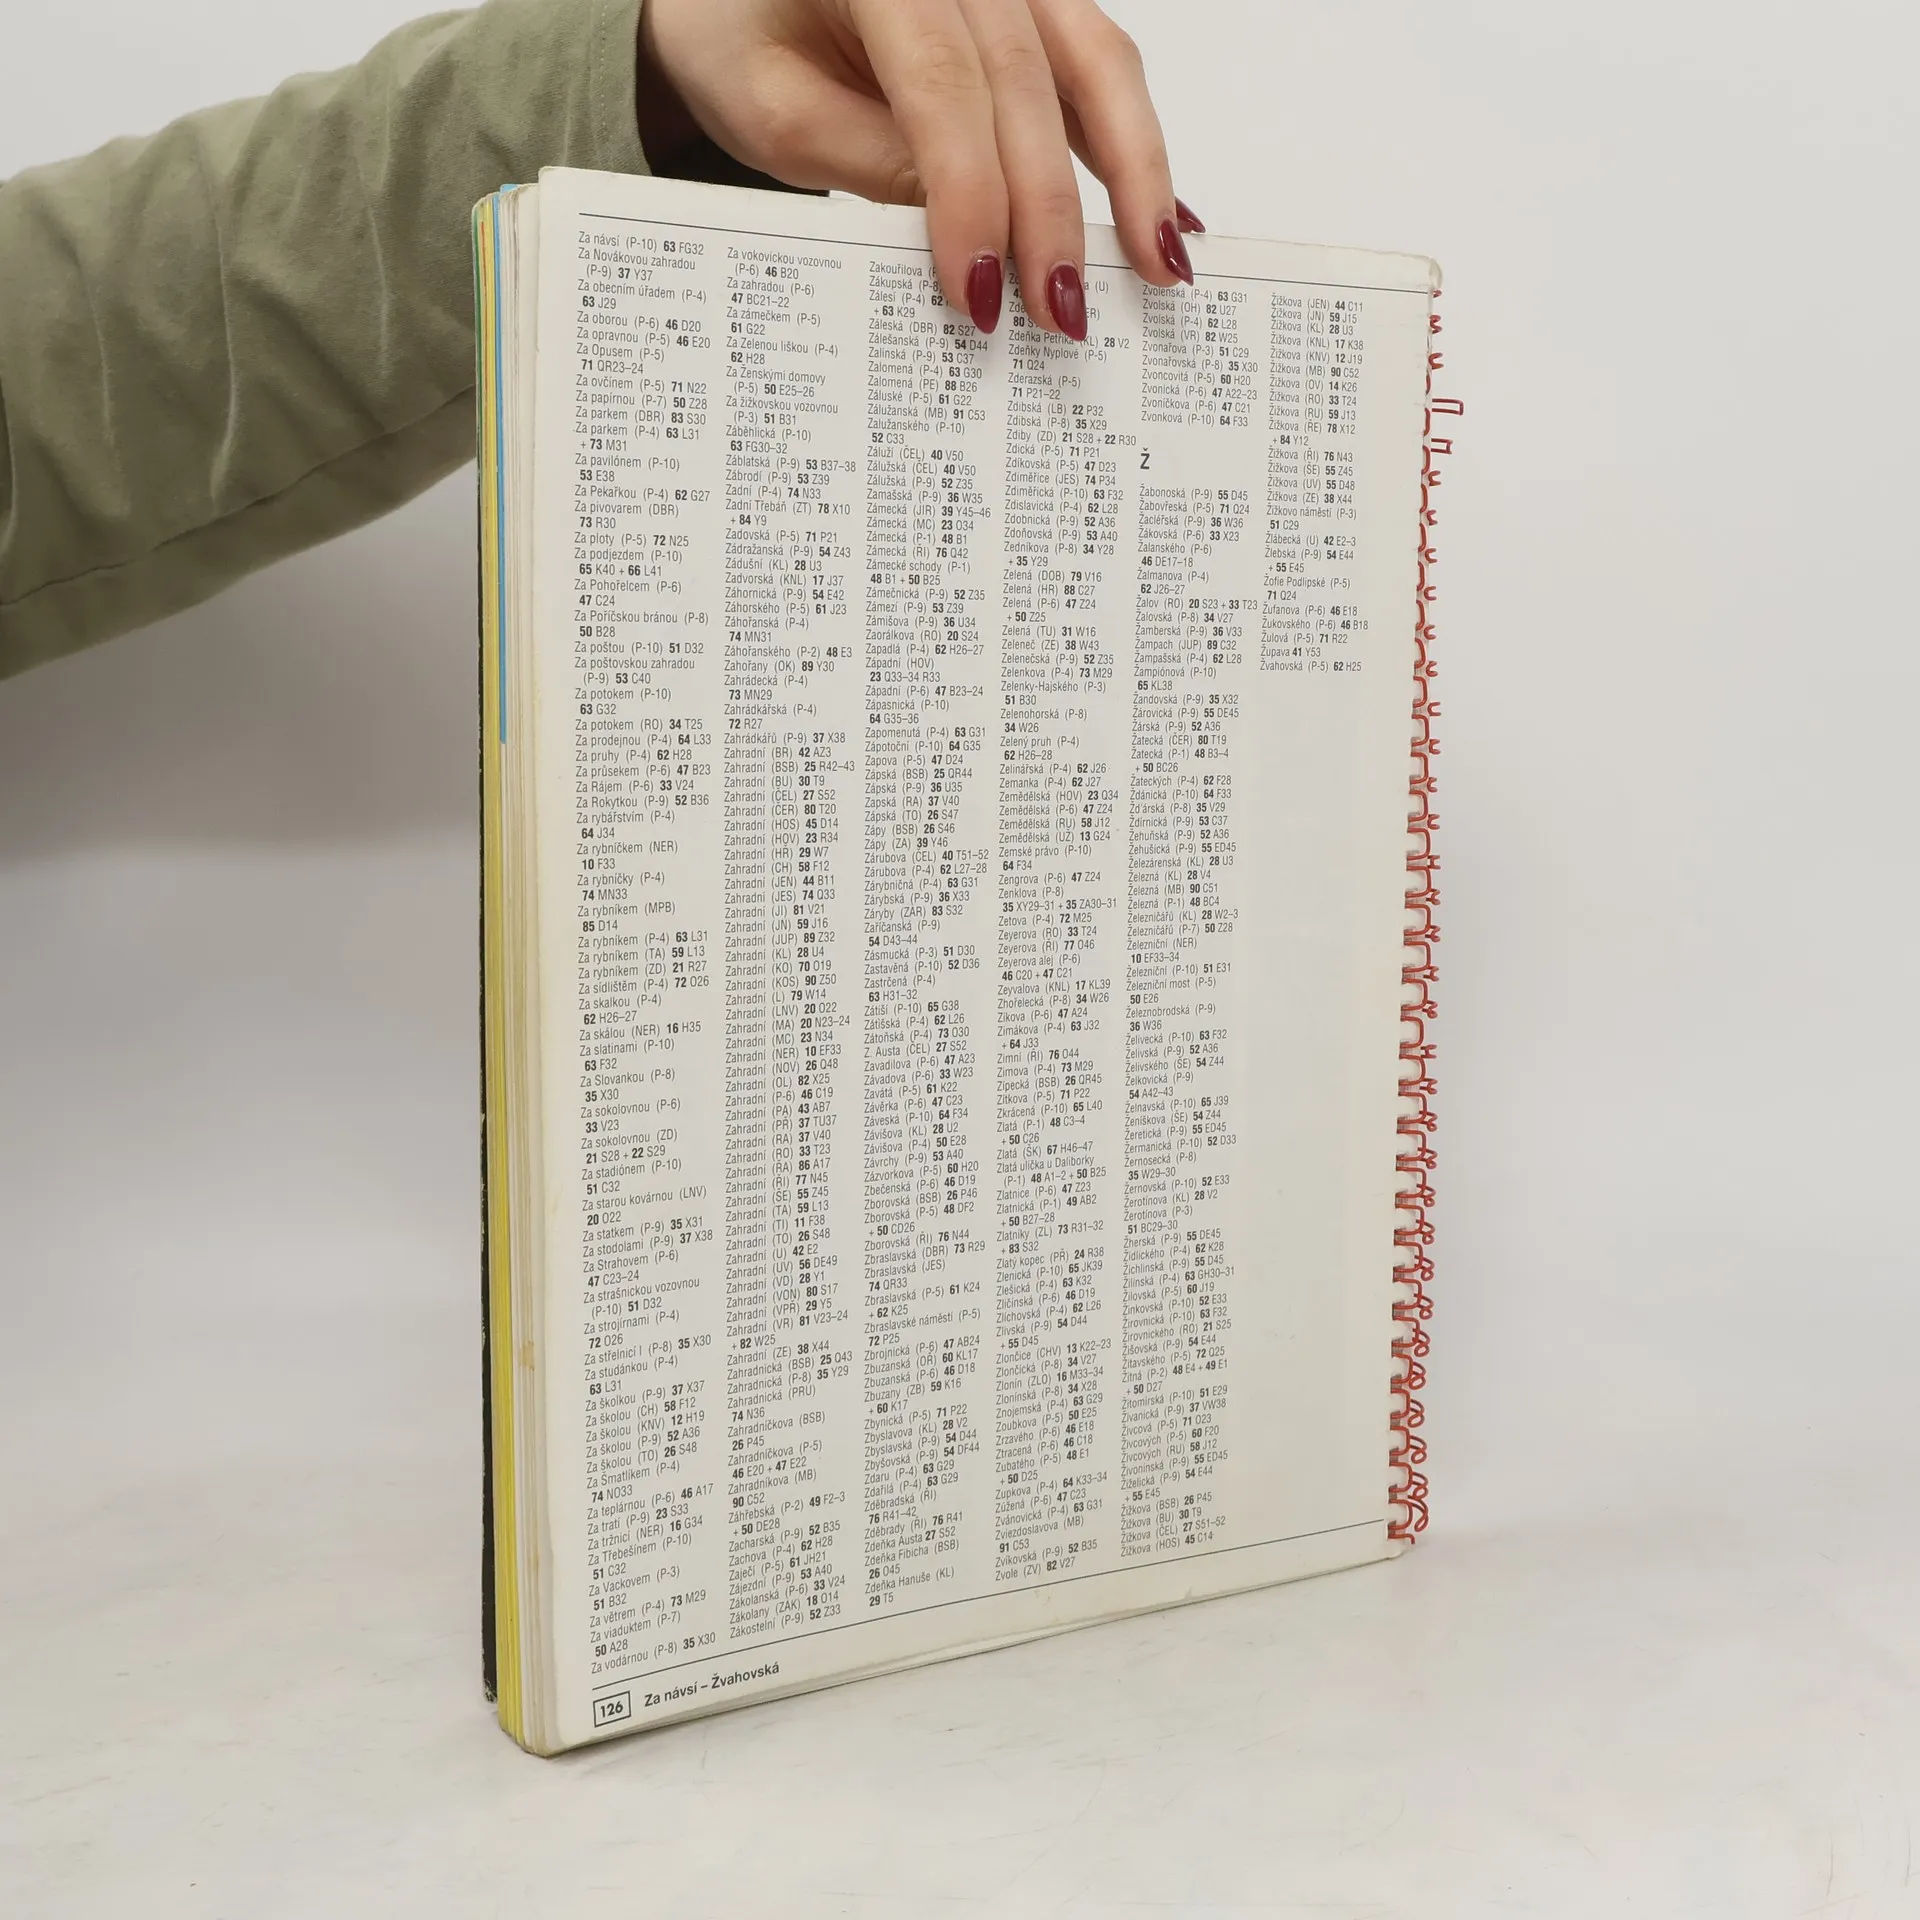 Za návsí (P-10) 63 FG32
Za Novákovou zahradou
(P-9) 37 Y37
Za obecním úřadem (P-4)
63 J29
Za oborou (P-6) 46 D20
Za opravnou (P-5) 46 E20
Za Opusem (P-5)
71 QR23–24
Za ovčínem (P-5) 71 N22
Za papírnou (P-7) 50 Z28
Za parkem (DBR) 83 S30
Za parkem (P-4) 63 L31
+ 73 M31
Za pavilónem (P-10)
53 E38
Za Pekařkou (P-4) 62 G27
Za pivovarem (DBR)
73 R30
Za ploty (P-5) 72 N25
Za podjezdem (P-10)
65 K40 + 66 L41
Za Pohořelcem (P-6)
47 C24
Za Poříčskou bránou (P-8)
50 B28
Za poštou (P-10) 51 D32
Za poštovskou zahradou
(P-9) 53 C40
Za potokem (P-10)
63 G32
Za potokem (RO) 34 T25
Za prodejnou (P-4) 64 L33
Za pruhy (P-4) 62 H28
Za průsekem (P-6) 47 B23
Za Rájem (P-6) 33 V24
Za Rokytkou (P-9) 52 B36
Za rybářstvím (P-4)
64 J34
Za rybníčkem (NER)
10 F33
Za rybníčky (P-4)
74 MN33
Za rybníkem (MPB)
85 D14
Za rybníkem (P-4) 63 L31
Za rybníkem (TA) 59 L13
Za rybníkem (ZD) 21 R27
Za sídlištěm (P-4) 72 O26
Za skalkou (P-4)
62 H26–27
Za skálou (NER) 16 H35
Za slatinami (P-10)
63 F32
Za Slovankou (P-8)
35 X30
Za sokolovnou (P-6)
33 V23
Za sokolovnou (ZD)
21 S28 + 22 S29
Za stadiónem (P-10)
51 C32
Za starou kovárnou (LNV)
20 O22
Za statkem (P-9) 35 X31
Za stodolami (P-9) 37 X38
Za Strahovem (P-6)
47 C23–24
Za strašnickou vozovnou
(P-10) 51 D32
Za strojírnami (P-4)
72 O26
Za střelnicí I (P-8) 35 X30
Za studánkou (P-4)
63 L31
Za školkou (P-9) 37 X37
Za školou (CH) 58 F12
Za školou (KNV) 12 H19
Za školou (P-9) 52 A36
Za školou (TO) 26 S48
Za Šmatlíkem (P-4)
74 NO33
Za teplárnou (P-6) 46 A17
Za tratí (P-9) 23 S33
Za tržnicí (NER) 16 G34
Za Třebešínem (P-10)
51 C32
Za Vackovem (P-3)
51 B32
Za větrem (P-4) 73 M29
Za viaduktem (P-7)
50 A28
Za vodárnou (P-8) 35 X30
Za vokovickou vozovnou
(P-6) 46 B20
Za zahradou (P-6)
47 BC21–22
Za zámečkem (P-5)
61 G22
Za Zelenou liškou (P-4)
62 H28
Za Ženskými domovy
(P-5) 50 E25–26
Za žižkovskou vozovnou
(P-3) 51 B31
Záběhlická (P-10)
63 FG30–32
Záblatská (P-9) 53 B37–38
Zábrodí (P-9) 53 Z39
Zadní (P-4) 74 N33
Zadní Třebáň (ZT) 78 X10
+ 84 Y9
Zadovská (P-5) 71 P21
Zádražanská (P-9) 54 Z43
Zádušní (KL) 28 U3
Zadvorská (KNL) 17 J37
Záhornická (P-9) 54 E42
Záhorského (P-5) 61 J23
Záhořanská (P-4)
74 MN31
Záhořanského (P-2) 48 E3
Zahořany (OK) 89 Y30
Zahrádecká (P-4)
73 MN29
Zahrádkářská (P-4)
72 R27
Zahrádkářů (P-9) 37 X38
Zahradní (BŘ) 42 AZ3
Zahradní (BSB) 25 R42–43
Zahradní (BU) 30 T9
Zahradní (ČEL) 27 S52
Zahradní (ČER) 80 T20
Zahradní (HOS) 45 D14
Zahradní (HOV) 23 R34
Zahradní (HR) 29 W7
Zahradní (CH) 58 F12
Zahradní (JEN) 44 B11
Zahradní (JES) 74 Q33
Zahradní (JI) 81 V21
Zahradní (JN) 59 J16
Zahradní (JUP) 89 Z32
Zahradní (KL) 28 U4
Zahradní (KO) 70 O19
Zahradní (KOS) 90 Z50
Zahradní (L) 79 W14
Zahradní (LNV) 20 O22
Zahradní (MA) 20 N23–24
Zahradní (MC) 23 N34
Zahradní (NER) 10 EF33
Zahradní (NOV) 26 Q48
Zahradní (OL) 82 X25
Zahradní (P-6) 46 C19
Zahradní (PA) 43 AB7
Zahradní (PŘ) 37 TU37
Zahradní (RA) 37 V40
Zahradní (RO) 33 T23
Zahradní (ŘA) 86 A17
Zahradní (ŘI) 77 N45
Zahradní (ŠE) 55 Z45
Zahradní (TA) 59 L13
Zahradní (TI) 11 F38
Zahradní (TO) 26 S48
Zahradní (U) 42 E2
Zahradní (UV) 56 DE49
Zahradní (VD) 28 Y1
Zahradní (VON) 80 S17
Zahradní (VPŘ) 29 Y5
Zahradní (VR) 81 V23–24
+ 82 W25
Zahradní (ZE) 38 X44
Zahradnická (BSB) 25 Q43
Zahradnická (P-8) 35 Y29
Zahradnická (PRU)
74 N36
Zahradníčkova (BSB)
26 P45
Zahradníčkova (P-5)
46 E20 + 47 E22
Zahradníkova (MB)
90 C52
Záhřebská (P-2) 49 F2–3
+ 50 DE28
Zacharská (P-9) 52 B35
Zachova (P-4) 62 H28
Zaječí (P-5) 61 JH21
Zájezdní (P-9) 53 A40
Zákolanská (P-6) 33 V24
Zákolany (ZAK) 18 O14
Zákostelní (P-9) 52 Z33
Zakouřilova
Zákupská (P-8)
Zálesí (P-4) 62
+ 63 K29
Záleská (DBR) 82 S27
Zálešanská (P-9) 54 D44
Zalinská (P-9) 53 C37
Zalomená (P-4) 63 G30
Zalomená (PE) 88 B26
Záluské (P-5) 61 G22
Zálužanská (MB) 91 C53
Zalužanského (P-10)
52 C33
Záluží (ČEL) 40 V50
Zálužská (ČEL) 40 V50
Zálužská (P-9) 52 Z35
Zamašská (P-9) 36 W35
Zámecká (JIR) 39 Y45–46
Zámecká (MC) 23 O34
Zámecká (P-1) 48 B1
Zámecká (ŘI) 76 Q42
Zámecké schody (P-1)
48 B1 + 50 B25
Zámečnická (P-9) 52 Z35
Zámezí (P-9) 53 Z39
Zámišova (P-9) 36 U34
Zaorálkova (RO) 20 S24
Zapadlá (P-4) 62 H26–27
Západní (HOV)
23 Q33–34 R33
Západní (P-6) 47 B23–24
Zápasnická (P-10)
64 G35–36
Zapomenutá (P-4) 63 G31
Zápotoční (P-10) 64 G35
Zapova (P-5) 47 D24
Zápská (BSB) 25 QR44
Zápská (P-9) 36 U35
Zapská (RA) 37 V40
Zápská (TO) 26 S47
Zápy (BSB) 26 S46
Zápy (ZA) 39 Y46
Zárubova (ČEL) 40 T51–52
Zárubova (P-4) 62 L27–28
Zárybničná (P-4) 63 G31
Zárybská (P-9) 36 X33
Záryby (ZAR) 83 S32
Zaříčanská (P-9)
54 D43–44
Zásmucká (P-3) 51 D30
Zastavěná (P-10) 52 D36
Zastrčená (P-4)
63 H31–32
Zátiší (P-10) 65 G38
Zátišská (P-4) 62 L26
Zátoňská (P-4) 73 O30
Z. Austa (ČEL) 27 S52
Zavadilova (P-6) 47 A23
Závadova (P-6) 33 W23
Zavátá (P-5) 61 K22
Závěrka (P-6) 47 C23
Záveská (P-10) 64 F34
Závišova (KL) 28 U2
Závišova (P-4) 50 E28
Závrchy (P-9) 53 A40
Zázvorkova (P-5) 60 H20
Zbečenská (P-6) 46 D19
Zborovská (BSB) 26 P46
Zborovská (P-5) 48 DF2
+ 50 CD26
Zborovská (ŘI) 76 N44
Zbraslavská (DBR) 73 R29
Zbraslavská (JES)
74 QR33
Zbraslavská (P-5) 61 K24
+ 62 K25
Zbraslavské náměstí (P-5)
72 P25
Zbrojnická (P-6) 47 AB24
Zbuzanská (OŘ) 60 KL17
Zbuzanská (P-6) 46 D18
Zbuzany (ZB) 59 K16
+ 60 K17
Zbynická (P-5) 71 P22
Zbyslavova (KL) 28 V2
Zbyslavská (P-9) 54 D44
Zbyšovská (P-9) 54 DF44
Zdaru (P-4) 63 G29
Zdařilá (P-4) 63 G29
Zděbradská (ŘI)
76 R41–42
Zděbrady (ŘI) 76 R41
Zdeňka Austa 27 S52
Zdeňka Fibicha (BSB)
26 O45
Zdeňka Hanuše (KL)
29 T5
a (U)
80
Zdeňka Petříka (KL) 28 V2
Zdeňky Nyplové (P-5)
71 Q24
Zderazská (P-5)
71 P21–22
Zdibská (LB) 22 P32
Zdibská (P-8) 35 X29
Zdiby (ZD) 21 S28 + 22 R30
Zdická (P-5) 71 P21
Zdíkovská (P-5) 47 D23
Zdiměřice (JES) 74 P34
Zdiměřická (P-10) 63 F32
Zdislavická (P-4) 62 L28
Zdobnická (P-9) 52 A36
Zdoňovská (P-9) 53 A40
Zedníkova (P-8) 34 Y28
+ 35 Y29
Zelená (DOB) 79 V16
Zelená (HR) 88 C27
Zelená (P-6) 47 Z24
+ 50 Z25
Zelená (TU) 31 W16
Zeleneč (ZE) 38 W43
Zelenečská (P-9) 52 Z35
Zelenkova (P-4) 73 M29
Zelenky-Hajského (P-3)
51 B30
Zelenohorská (P-8)
34 W26
Zelený pruh (P-4)
62 H26–28
Zelinářská (P-4) 62 J26
Zemanka (P-4) 62 J27
Zemědělská (HOV) 23 Q34
Zemědělská (P-6) 47 Z24
Zemědělská (RU) 58 J12
Zemědělská (UŽ) 13 G24
Zemské právo (P-10)
64 F34
Zengrova (P-6) 47 Z24
Zenklova (P-8)
35 XY29–31 + 35 ZA30–31
Zetova (P-4) 72 M25
Zeyerova (RO) 33 T24
Zeyerova (ŘI) 77 O46
Zeyerova alej (P-6)
46 C20 + 47 C21
Zeyvalova (KNL) 17 KL39
Zhořelecká (P-8) 34 W26
Zíkova (P-6) 47 A24
Zimákova (P-4) 63 J32
+ 64 J33
Zimní (ŘI) 76 O44
Zimova (P-4) 73 M29
Zípecká (BSB) 26 QR45
Zítkova (P-5) 71 P22
Zkrácená (P-10) 65 L40
Zlatá (P-1) 48 C3–4
+ 50 C26
Zlatá (ŠK) 67 H46–47
Zlatá ulička u Daliborky
(P-1) 48 A1–2 + 50 B25
Zlatnice (P-6) 47 Z23
Zlatnická (P-1) 49 AB2
+ 50 B27–28
Zlatníky (ZL) 73 R31–32
+ 83 S32
Zlatý kopec (PŘ) 24 R38
Zlenická (P-10) 65 JK39
Zlešická (P-4) 63 K32
Zličínská (P-6) 46 D19
Zlíchovská (P-4) 62 L26
Zlivská (P-9) 54 D44
+ 55 D45
Zlončice (CHV) 13 K22–23
Zlončická (P-8) 34 V27
Zlonín (ZLO) 16 M33–34
Zlonínská (P-8) 34 X28
Znojemská (P-4) 63 G29
Zoubkova (P-5) 50 E25
Zrzavého (P-6) 46 E18
Ztracená (P-6) 46 C18
Zubatého (P-5) 48 E1
+ 50 D25
Zupkova (P-4) 64 K33–34
Zúžená (P-6) 47 C23
Zvánovická (P-4) 63 G31
Zviezdoslavova (MB)
91 C53
Zvíkovská (P-9) 52 B35
Zvole (ZV) 82 V27
Zvolenská (P-4) 63 G31
Zvolská (OH) 82 U27
Zvolská (P-4) 62 L28
Zvolská (VR) 82 W25
Zvonařova (P-3) 51 C29
Zvonařovská (P-8) 35 X30
Zvoncovitá (P-5) 60 H20
Zvonická (P-6) 47 A22–23
Zvoníčkova (P-6) 47 C21
Zvonková (P-10) 64 F33
Ž
Žabonoská (P-9) 55 D45
Žabovřeská (P-5) 71 Q24
Žacléřská (P-9) 36 W36
Žákovská (P-6) 33 X23
Žalanského (P-6)
46 DE17–18
Žalmanova (P-4)
62 J26–27
Žalov (RO) 20 S23 + 33 T23
Žalovská (P-8) 34 V27
Žamberská (P-9) 36 V33
Žampach (JUP) 89 C32
Žampašská (P-4) 62 L28
Žampiónová (P-10)
65 KL38
Žandovská (P-9) 35 X32
Žárovická (P-9) 55 DE45
Žárská (P-9) 52 A36
Žatecká (ČER) 80 T19
Žatecká (P-1) 48 B3–4
+ 50 BC26
Žateckých (P-4) 62 F28
Ždánická (P-10) 64 F33
Žďárská (P-8) 35 V29
Ždírnická (P-9) 53 C37
Žehuňská (P-9) 52 A36
Žehušická (P-9) 55 ED45
Železárenská (KL) 28 U3
Železná (KL) 28 V4
Železná (MB) 90 C51
Železná (P-1) 48 BC4
Železničářů (KL) 28 W2–3
Železničářů (P-7) 50 Z28
Železniční (NER)
10 EF33–34
Železniční (P-10) 51 E31
Železniční most (P-5)
50 E26
Železnobrodská (P-9)
36 W36
Želivecká (P-10) 63 F32
Želivská (P-9) 52 A36
Želivského (ŠE) 54 Z44
Želkovická (P-9)
54 A42–43
Želnavská (P-10) 65 J39
Ženíškova (ŠE) 54 Z44
Žeretická (P-9) 55 ED45
Žermanická (P-10) 52 D33
Žernosecká (P-8)
35 W29–30
Žernovská (P-10) 52 E33
Žerotínova (KL) 28 V2
Žerotínova (P-3)
51 BC29–30
Žherská (P-9) 55 DE45
Židlického (P-4) 62 K28
Žichlínská (P-9) 55 D45
Žilinská (P-4) 63 GH30–31
Žilovská (P-5) 60 J19
Žinkovská (P-10) 52 E33
Žirovnická (P-10) 63 F32
Žirovnického (RO) 21 S25
Žíšovská (P-9) 54 E44
Žitavského (P-5) 72 Q25
Žitná (P-2) 48 E4 + 49 E1
+ 50 D27
Žitomírská (P-10) 51 E29
Živanická (P-9) 37 VW38
Živcová (P-5) 71 O23
Živcových (P-5) 60 F20
Živcových (RU) 58 J12
Živonínská (P-9) 55 ED45
Žiželická (P-9) 54 E44
+ 55 E45
Žižkova (BSB) 26 P45
Žižkova (BU) 30 T9
Žižkova (ČEL) 27 S51–52
Žižkova (HOS) 45 C14
Žižkova (JEN) 44 C11
Žižkova (JN) 59 J15
Žižkova (KL) 28 U3
Žižkova (KNL) 17 K38
Žižkova (KNV) 12 J19
Žižkova (MB) 90 C52
Žižkova (OV) 14 K26
Žižkova (RO) 33 T24
Žižkova (RU) 59 J13
Žižkova (ŘE) 78 X12
+ 84 Y12
Žižkova (ŘI) 76 N43
Žižkova (ŠE) 55 Z45
Žižkova (UV) 55 D48
Žižkova (ZE) 38 X44
Žižkovo náměstí (P-3)
51 C29
Žlábecká (U) 42 E2–3
Žlebská (P-9) 54 E44
+ 55 E45
Žofie Podlipské (P-5)
71 Q24
Žufanova (P-6) 46 E18
Žukovského (P-6) 46 B18
Žulová (P-5) 71 R22
Župava 41 Y53
Žvahovská (P-5) 62 H25
126 Za návsí – Žvahovská